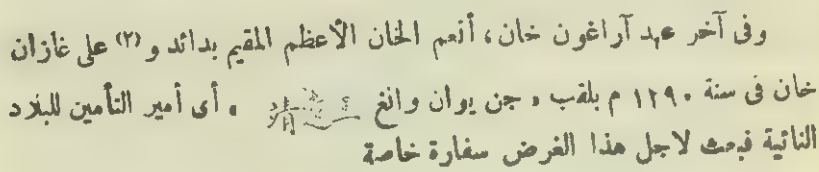 وفى آخر عهد آراغون خان، أنعم الخان الأعظم المقيم بدائد و (٢) على غازان
خان فى سنة ١٢٩٠ م بلقب « جن يوان وانغ » أى أمير التأمين للبلاد
النائية فبعث لاجل هذا الغرض سفارة خاصة